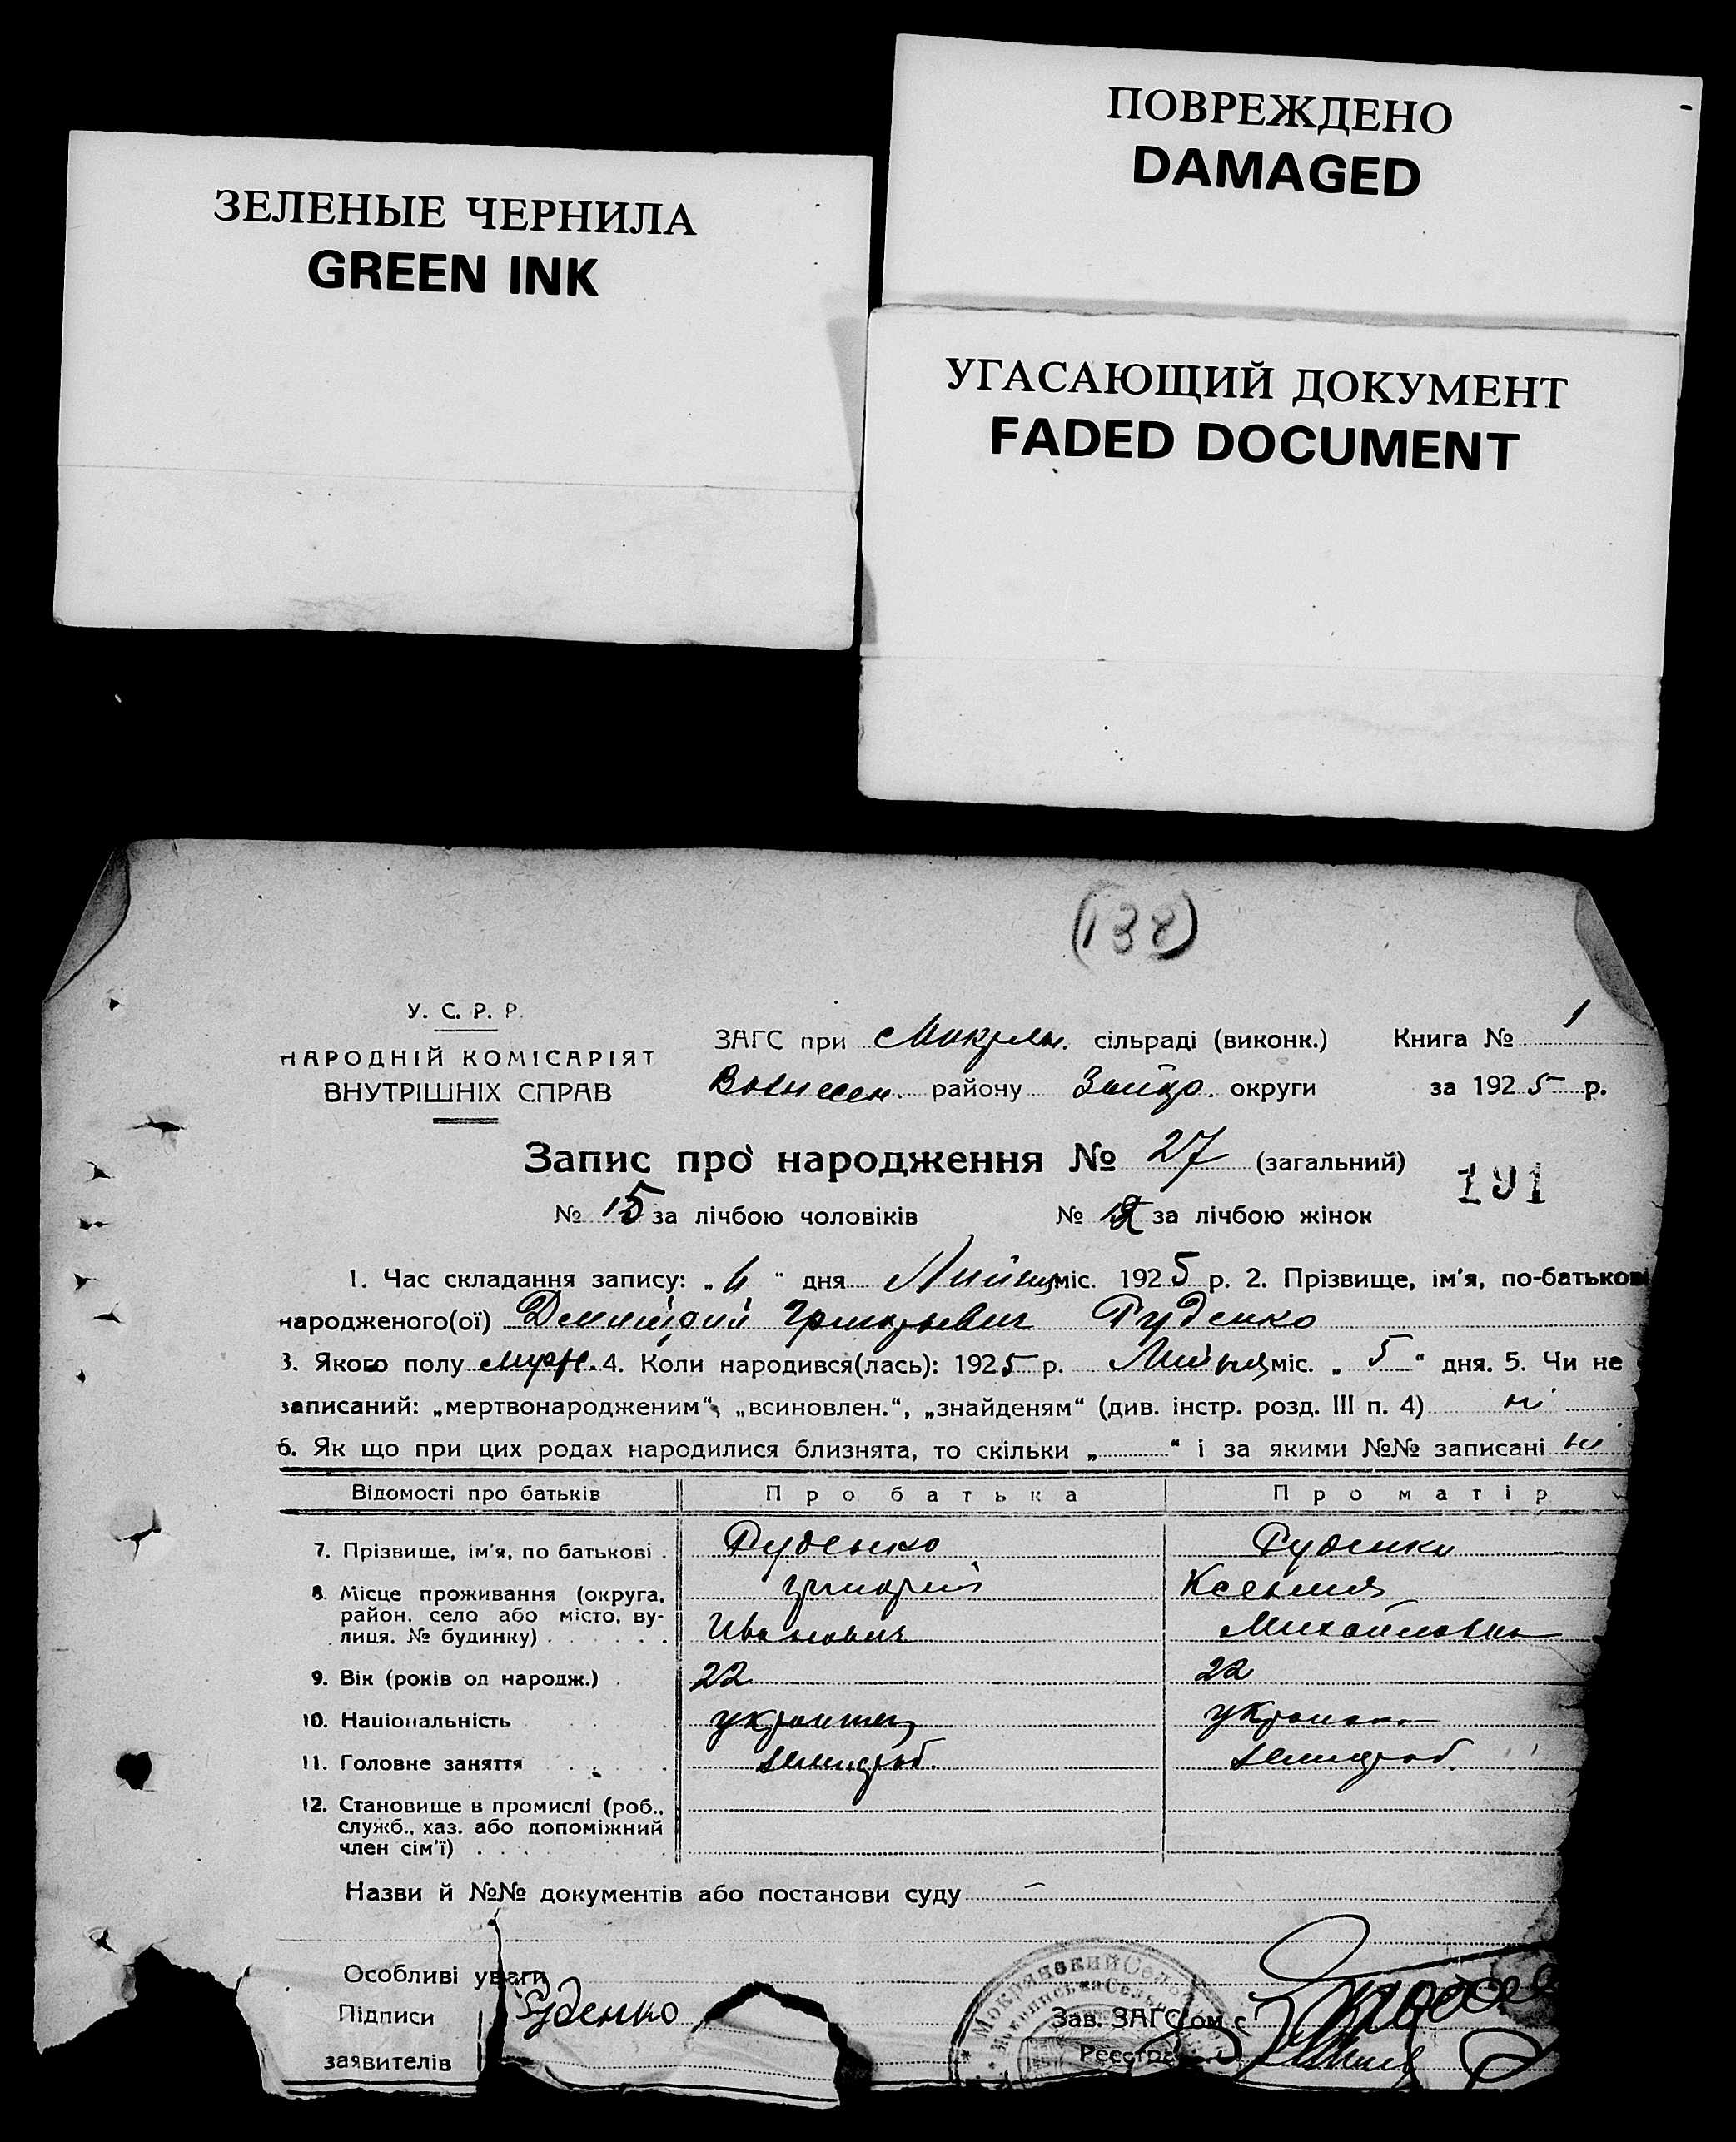 ЗЕЛЕНЫЕ ЧЕРНИЛА
GREEN INK
ПОВРЕЖДЕНО
DAMAGED
УГАСАЮЩИЙ ДОКУМЕНТ
FADED DOCUMENT
(138)
У. С. Р. Р.
НАРОДНІЙ КОМІСАРІЯТ
ВНУТРІШНІХ СПРАВ
ЗАГС при Мокрян. сільраді (виконк.) Книга № 1
Вознесен. району округи за 1925 р.
Запис про народження № 27 (загальний)
191
№ 15 за лічбою чоловіків № 12 за лічбою жінок
1. Час складання запису: „6“ дня міс. 1925 р. 2. Прізвище, ім'я, по-батькові
народженого(ої) Димитрий Григорьевич Руденко
3. Якого полу 4. Коли народився(лась): 1925 р. міс. „5“ дня. 5. Чи не
записаний: „мертвонародженим“, „всиновлен.“, „знайденям“ (див. інстр. розд. III п. 4) ні
6. Як що при цих родах народилися близнята, то скільки „ “ і за якими №№ записані ні
Відомості про батьків Про батька Про матір
7. Прізвище, ім'я, по батькові . Руденко Руденко
8. Місце проживання (округа, Григорий Ксения
район, село або місто, ву-
лиця, № будинку) . . . . . . Иванович Михайловна
9. Вік (років од народж.) . 22 22
10. Національність украинец украинка
11. Головне заняття . . .
12. Становище в промислі (роб.,
служб., хаз. або допоміжний
член сім'ї) . . . . . .
Назви й №№ документів або постанови суду —
Особливі уваги
Підписи Руденко Зав. ЗАГС'ом
заявителів Реєстра
Мокрянский Сель